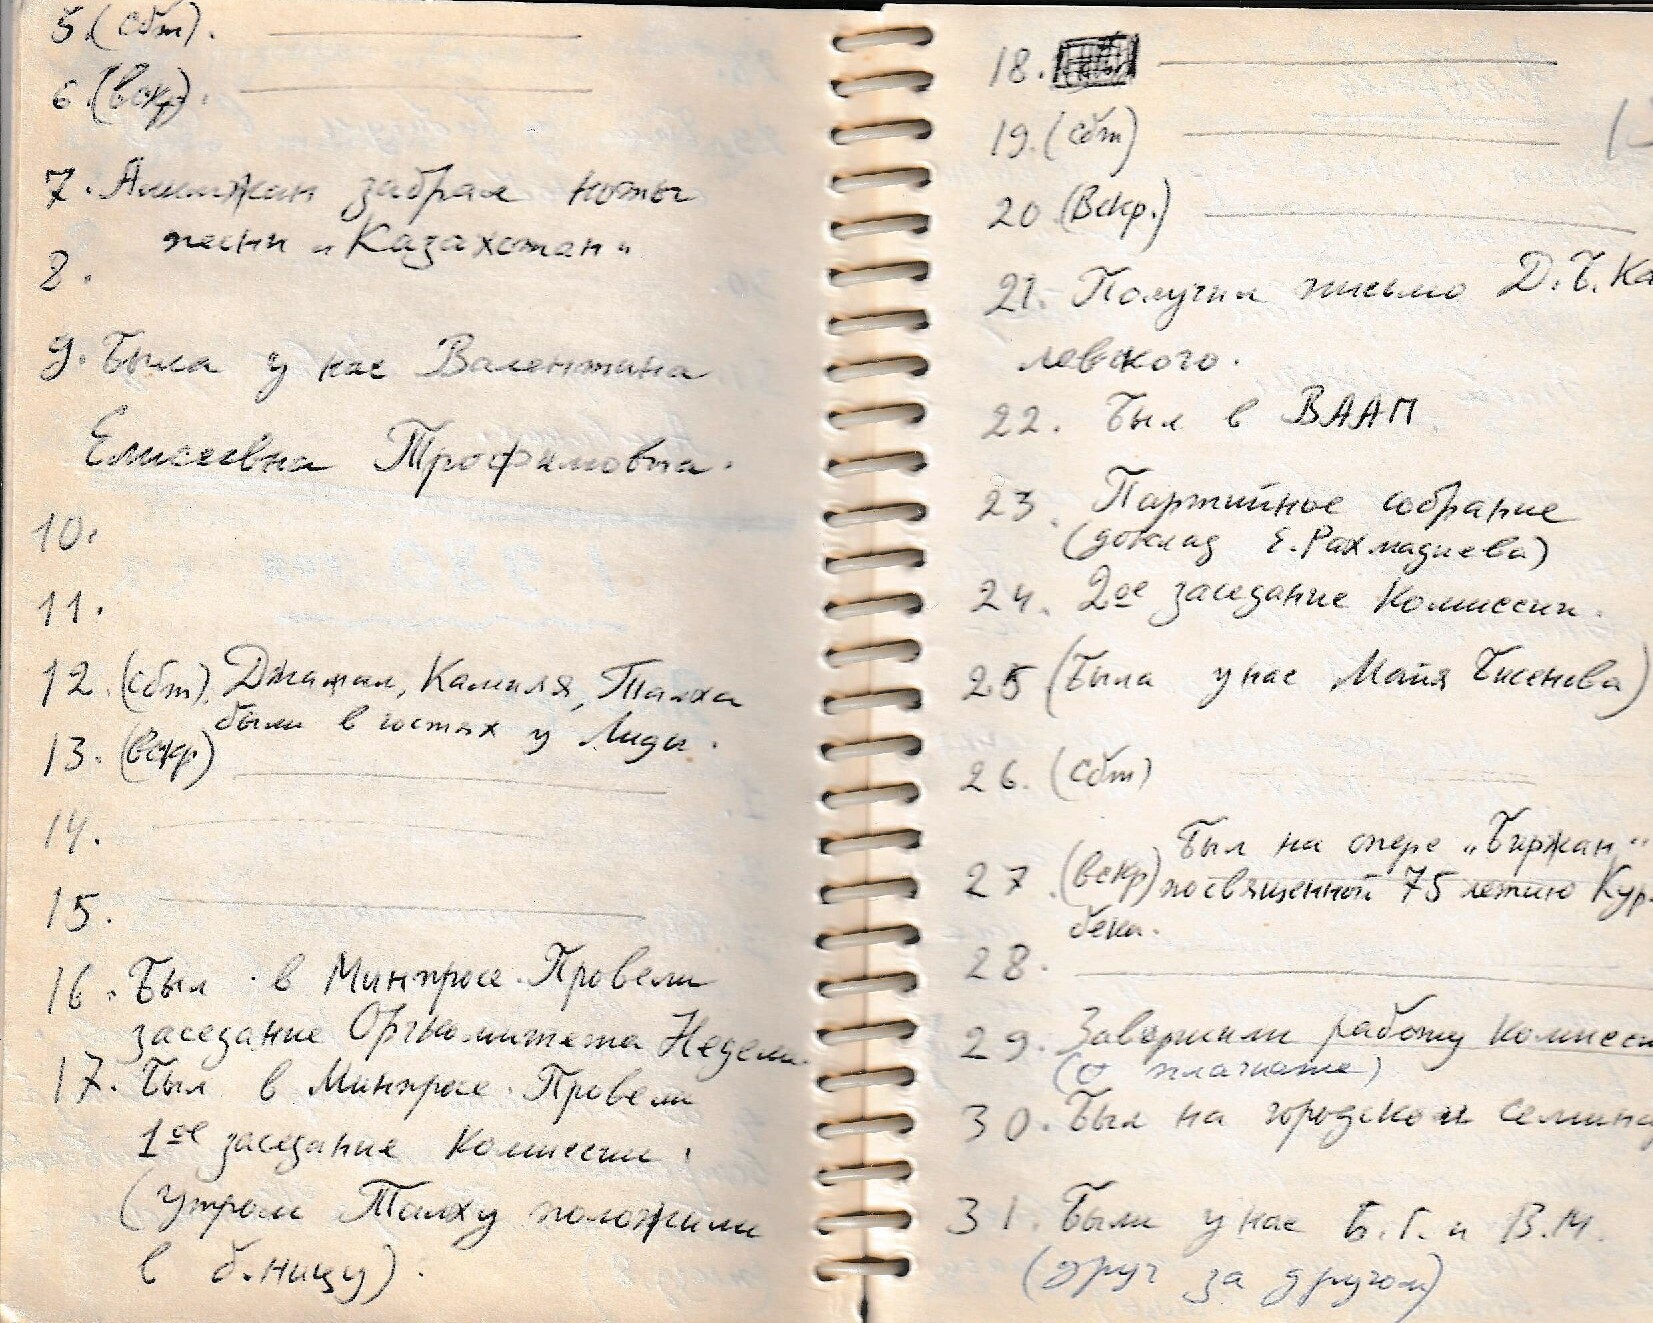 5.(сбт).
6.(вскр).
7. Алимжан забрал ноты
песни „Казахстан“
8.
9. Была у нас Валентина
Елисеевна Трофимовна.
10.
11.
12.(сбт). Джамал, Камиля, Талха
были в гостях у Лиды.
13. (вскр)
14.
15.
16. Был в Минпросе. Провели
заседание Оргкомитета Недели.
17. Был в Минпросе. Провели
1ое заседание Комиссии.
(утром Талху положили
в б.ницу).
18.
19.(сбт)
20.(Вскр.)
21. Получил письмо Д.Б.Ка
левского.
22. Был в ВААП
23. Партийное собрание
(доклад Е.Рахмадиева)
24. 2ое заседание Комиссии.
25 (Была у нас Майя Бисенова)
26. (сбт)
Был на опере „Биржан“
27 (вскр) посвященной 75 летию Кур-
бека.
28.
29. Завершили работу Комисси
(о плагиате)
30. Был на городском семина
31. Были у нас Б.Г. и В.М.
(друг за другом)